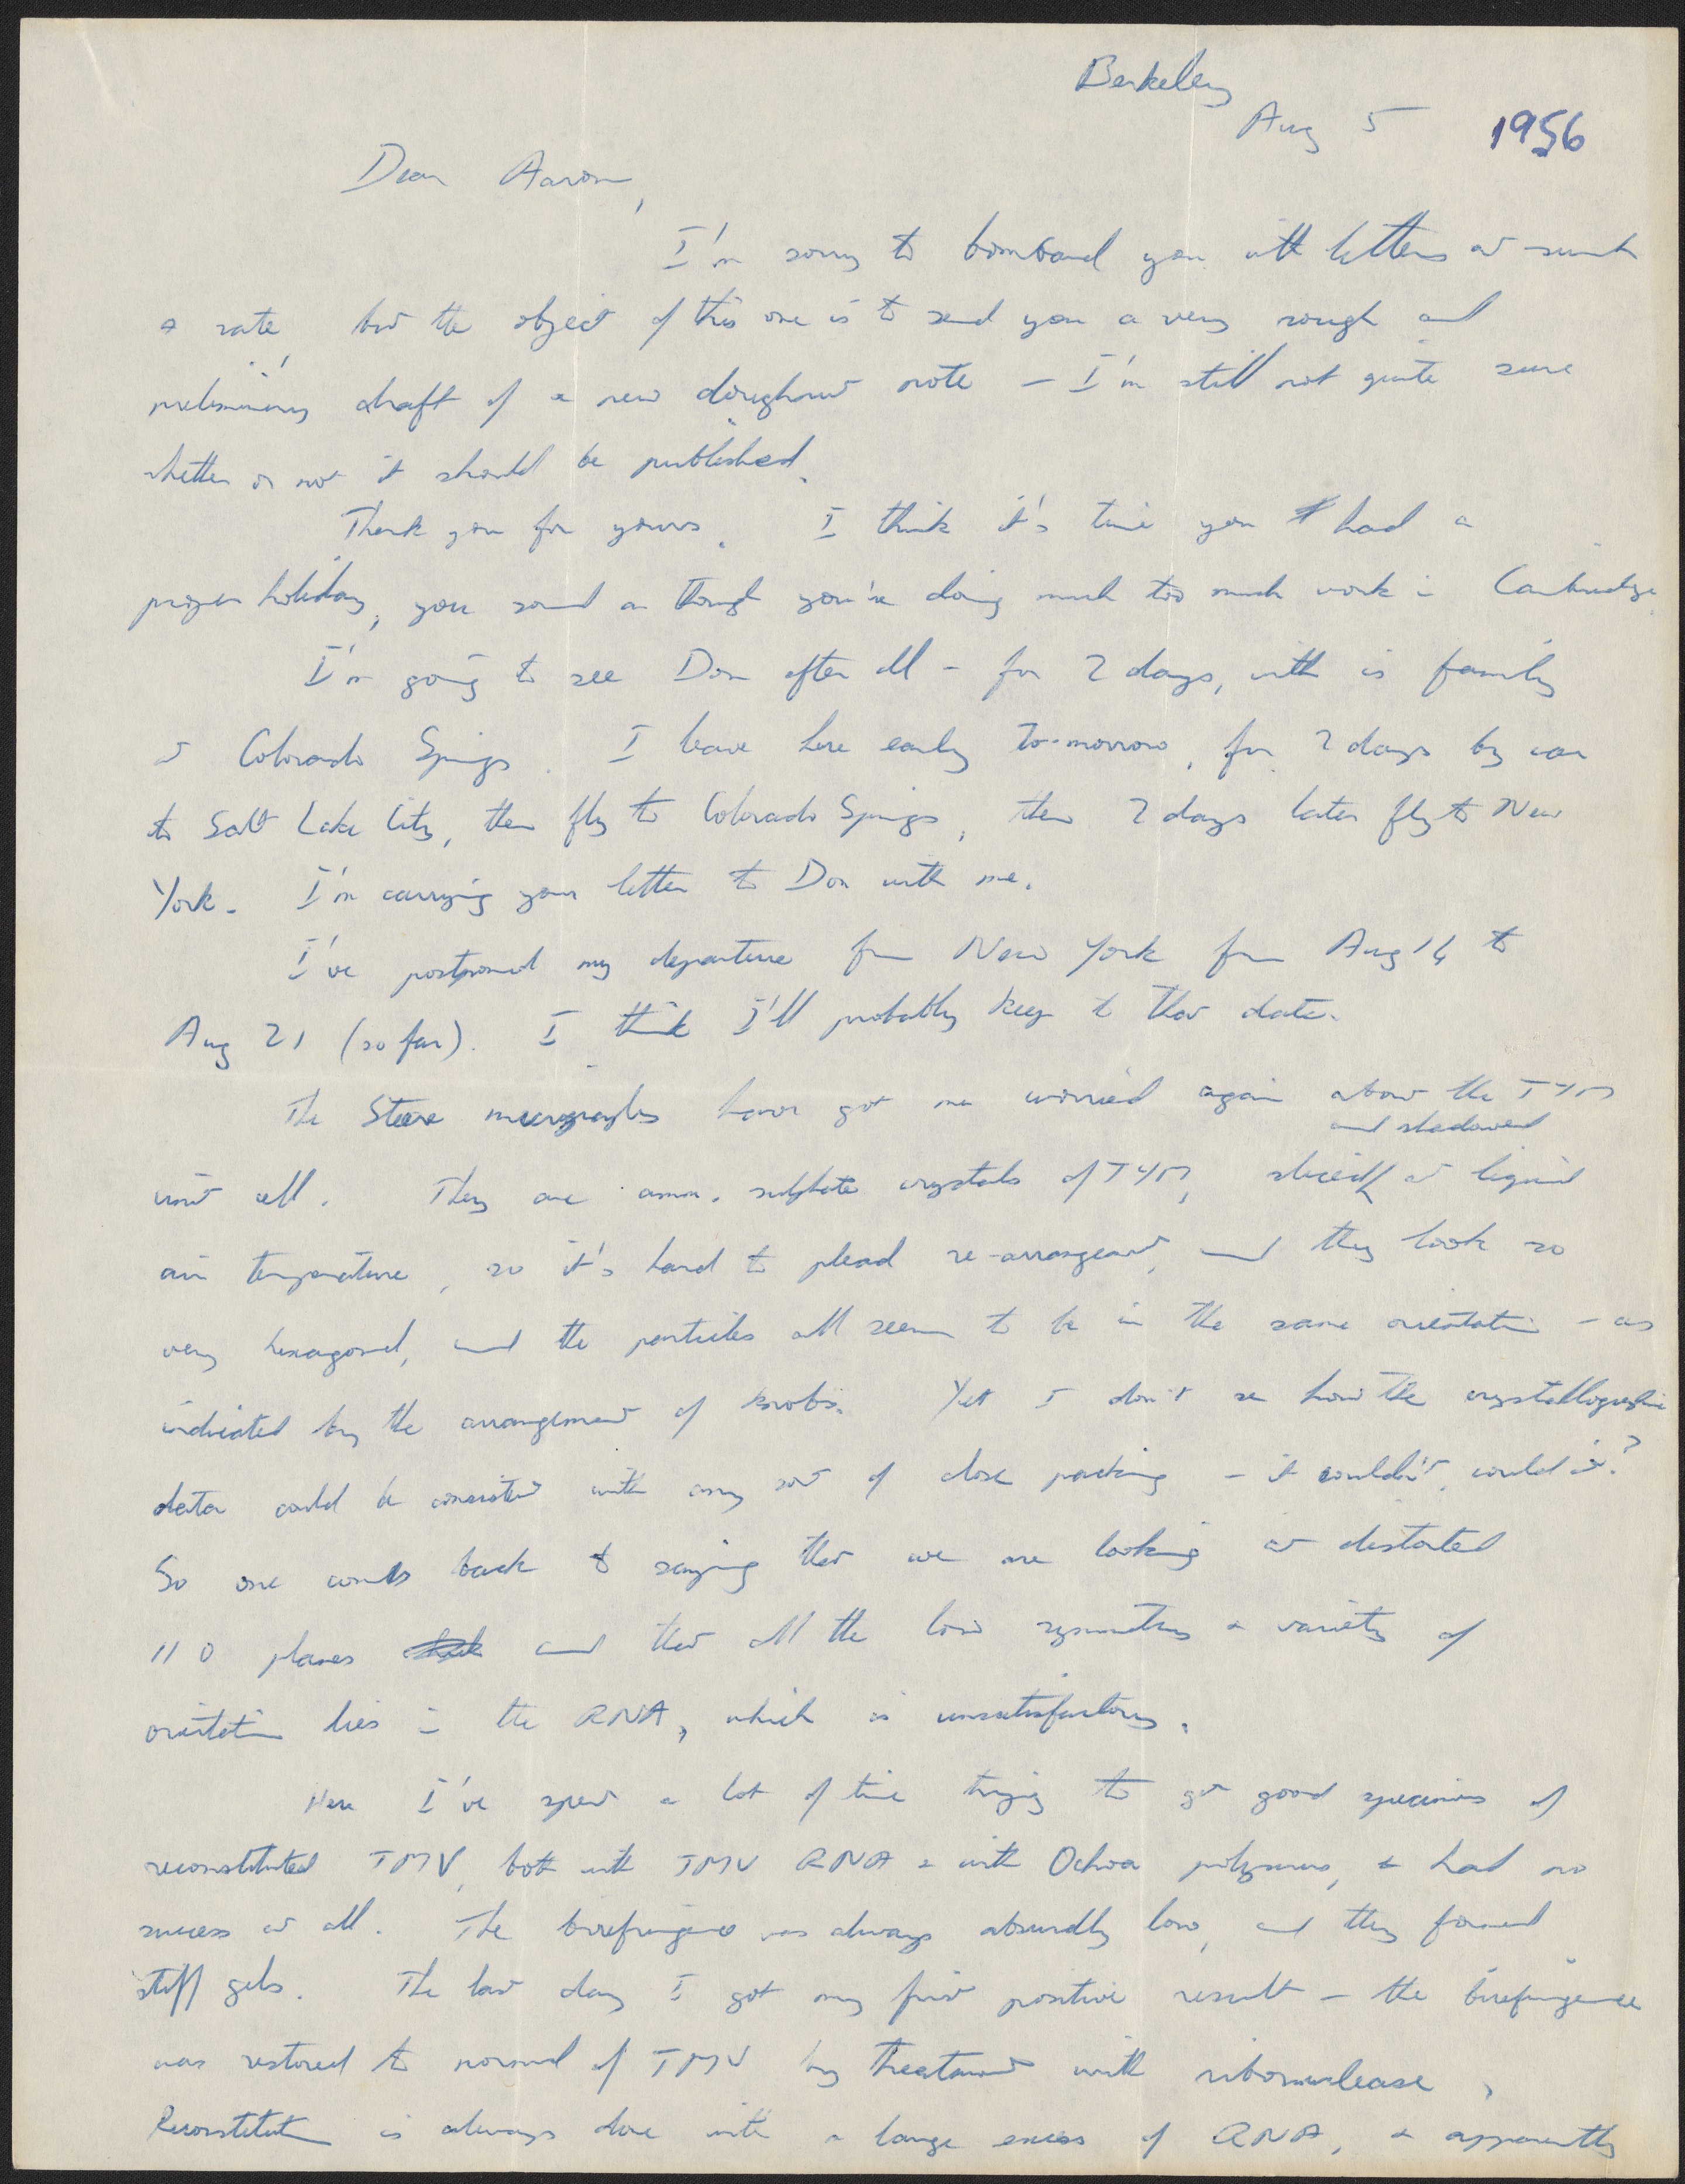 Berkeley
Aug 5 1956
Dear Aaron,
I'm sorry to bombard you with letters at such
a rate but the object of this one is to send you a very rough and
preliminary draft of a new doughnut note – I'm still not quite sure
whether or not it should be published.
Thank you for yours. I think it's time you had a
proper holiday, you sound as though you're doing much too much work in Cambridge.
I'm going to see Don after all – for 2 days, with is family
at Colorado Springs. I leave here early to-morrow, for 2 days by car
to Salt Lake City, then fly to Colorado Springs, then 2 days later fly to New
York. I'm carrying your letter to Don with me.
I've postponed my departure from New York from Aug 14 to
Aug 21 (so far). I think I'll probably keep to that date.
The Steere micrographs have got me worried again about the TYM
unit cell. They are amm. sulphate crystals of TYM, sliced and shadowed at liquid
air temperature, so it's hard to plead re-arrangement, and they look so
very hexagonal, and the particles all seem to be in the same orientation – as
indicated by the arrangement of knobs. Yet I don't see how the crystallographic
data could be consistent with any sort of close packing – it couldn't, could it?
So one comes back to saying that we are looking at distorted
110 planes and that all the low symmetry & variety of
orientation lies in the RNA, which is unsatisfactory.
Here I've spent a lot of time trying to get good specimens of
reconstituted TMV, both with TMV RNA & with Ochoa polymers, & had no
success at all. The birefringence was always absurdly low, and they formed
stiff gels. The last day I got my first positive result – the birefringence
was restored to normal of TMV by treatment with ribonuclease.
Reconstitution is always done with a large excess of RNA, & apparently